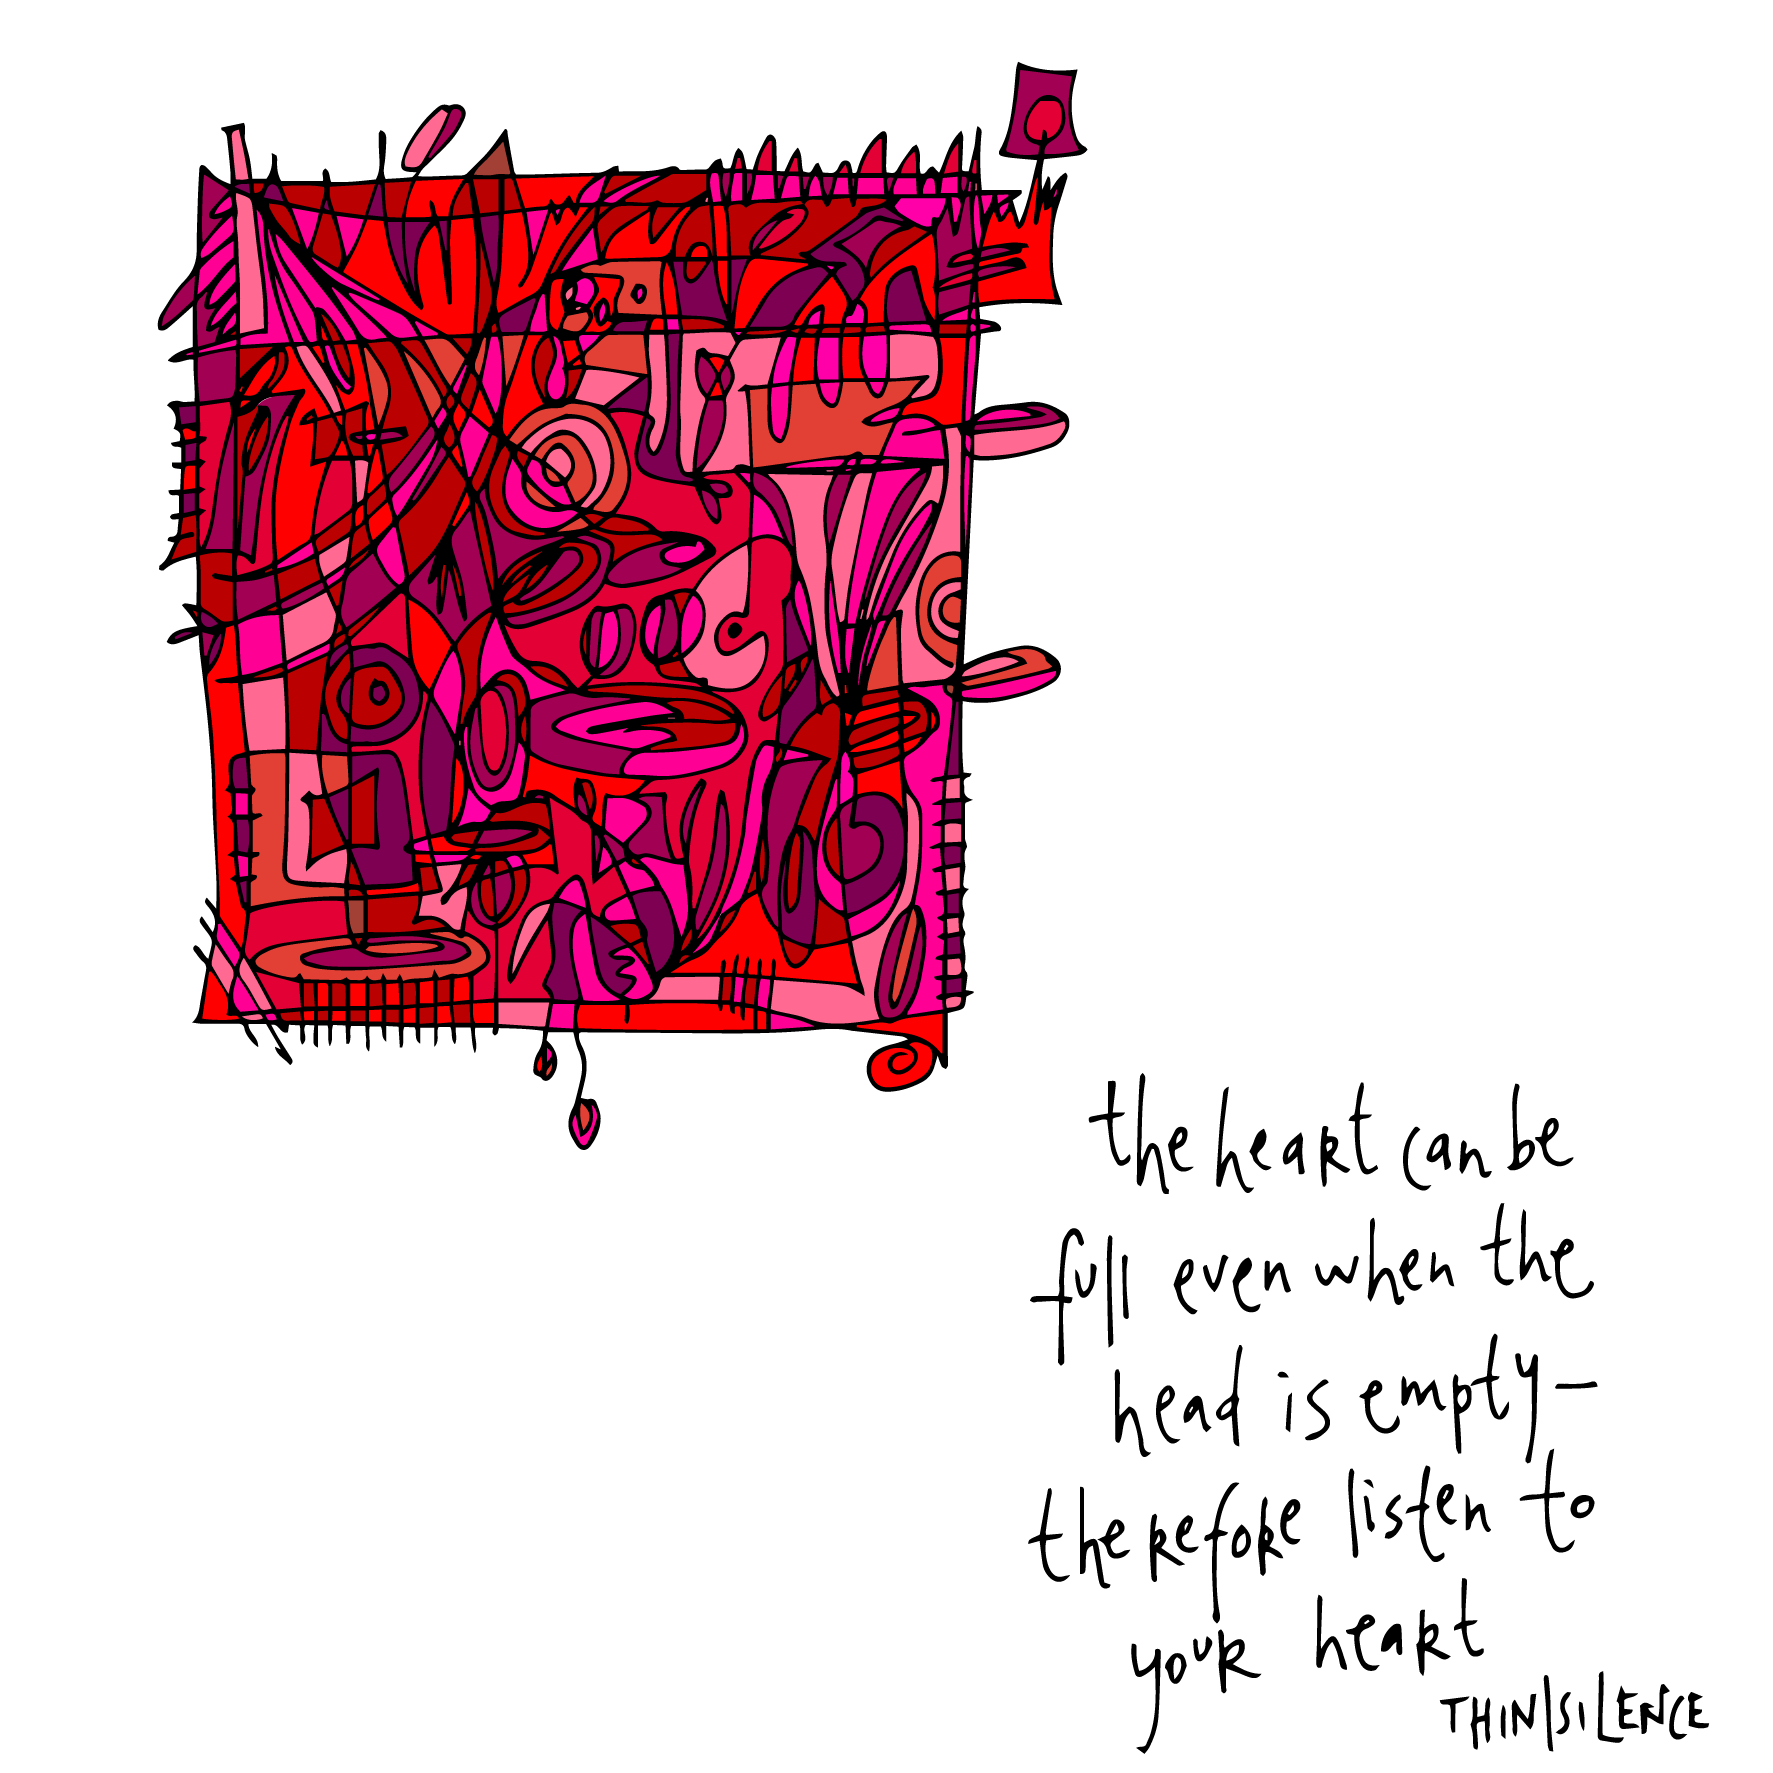 the heart can be
full even when the
head is empty–
therefore listen to
your heart
THIN|SILENCE